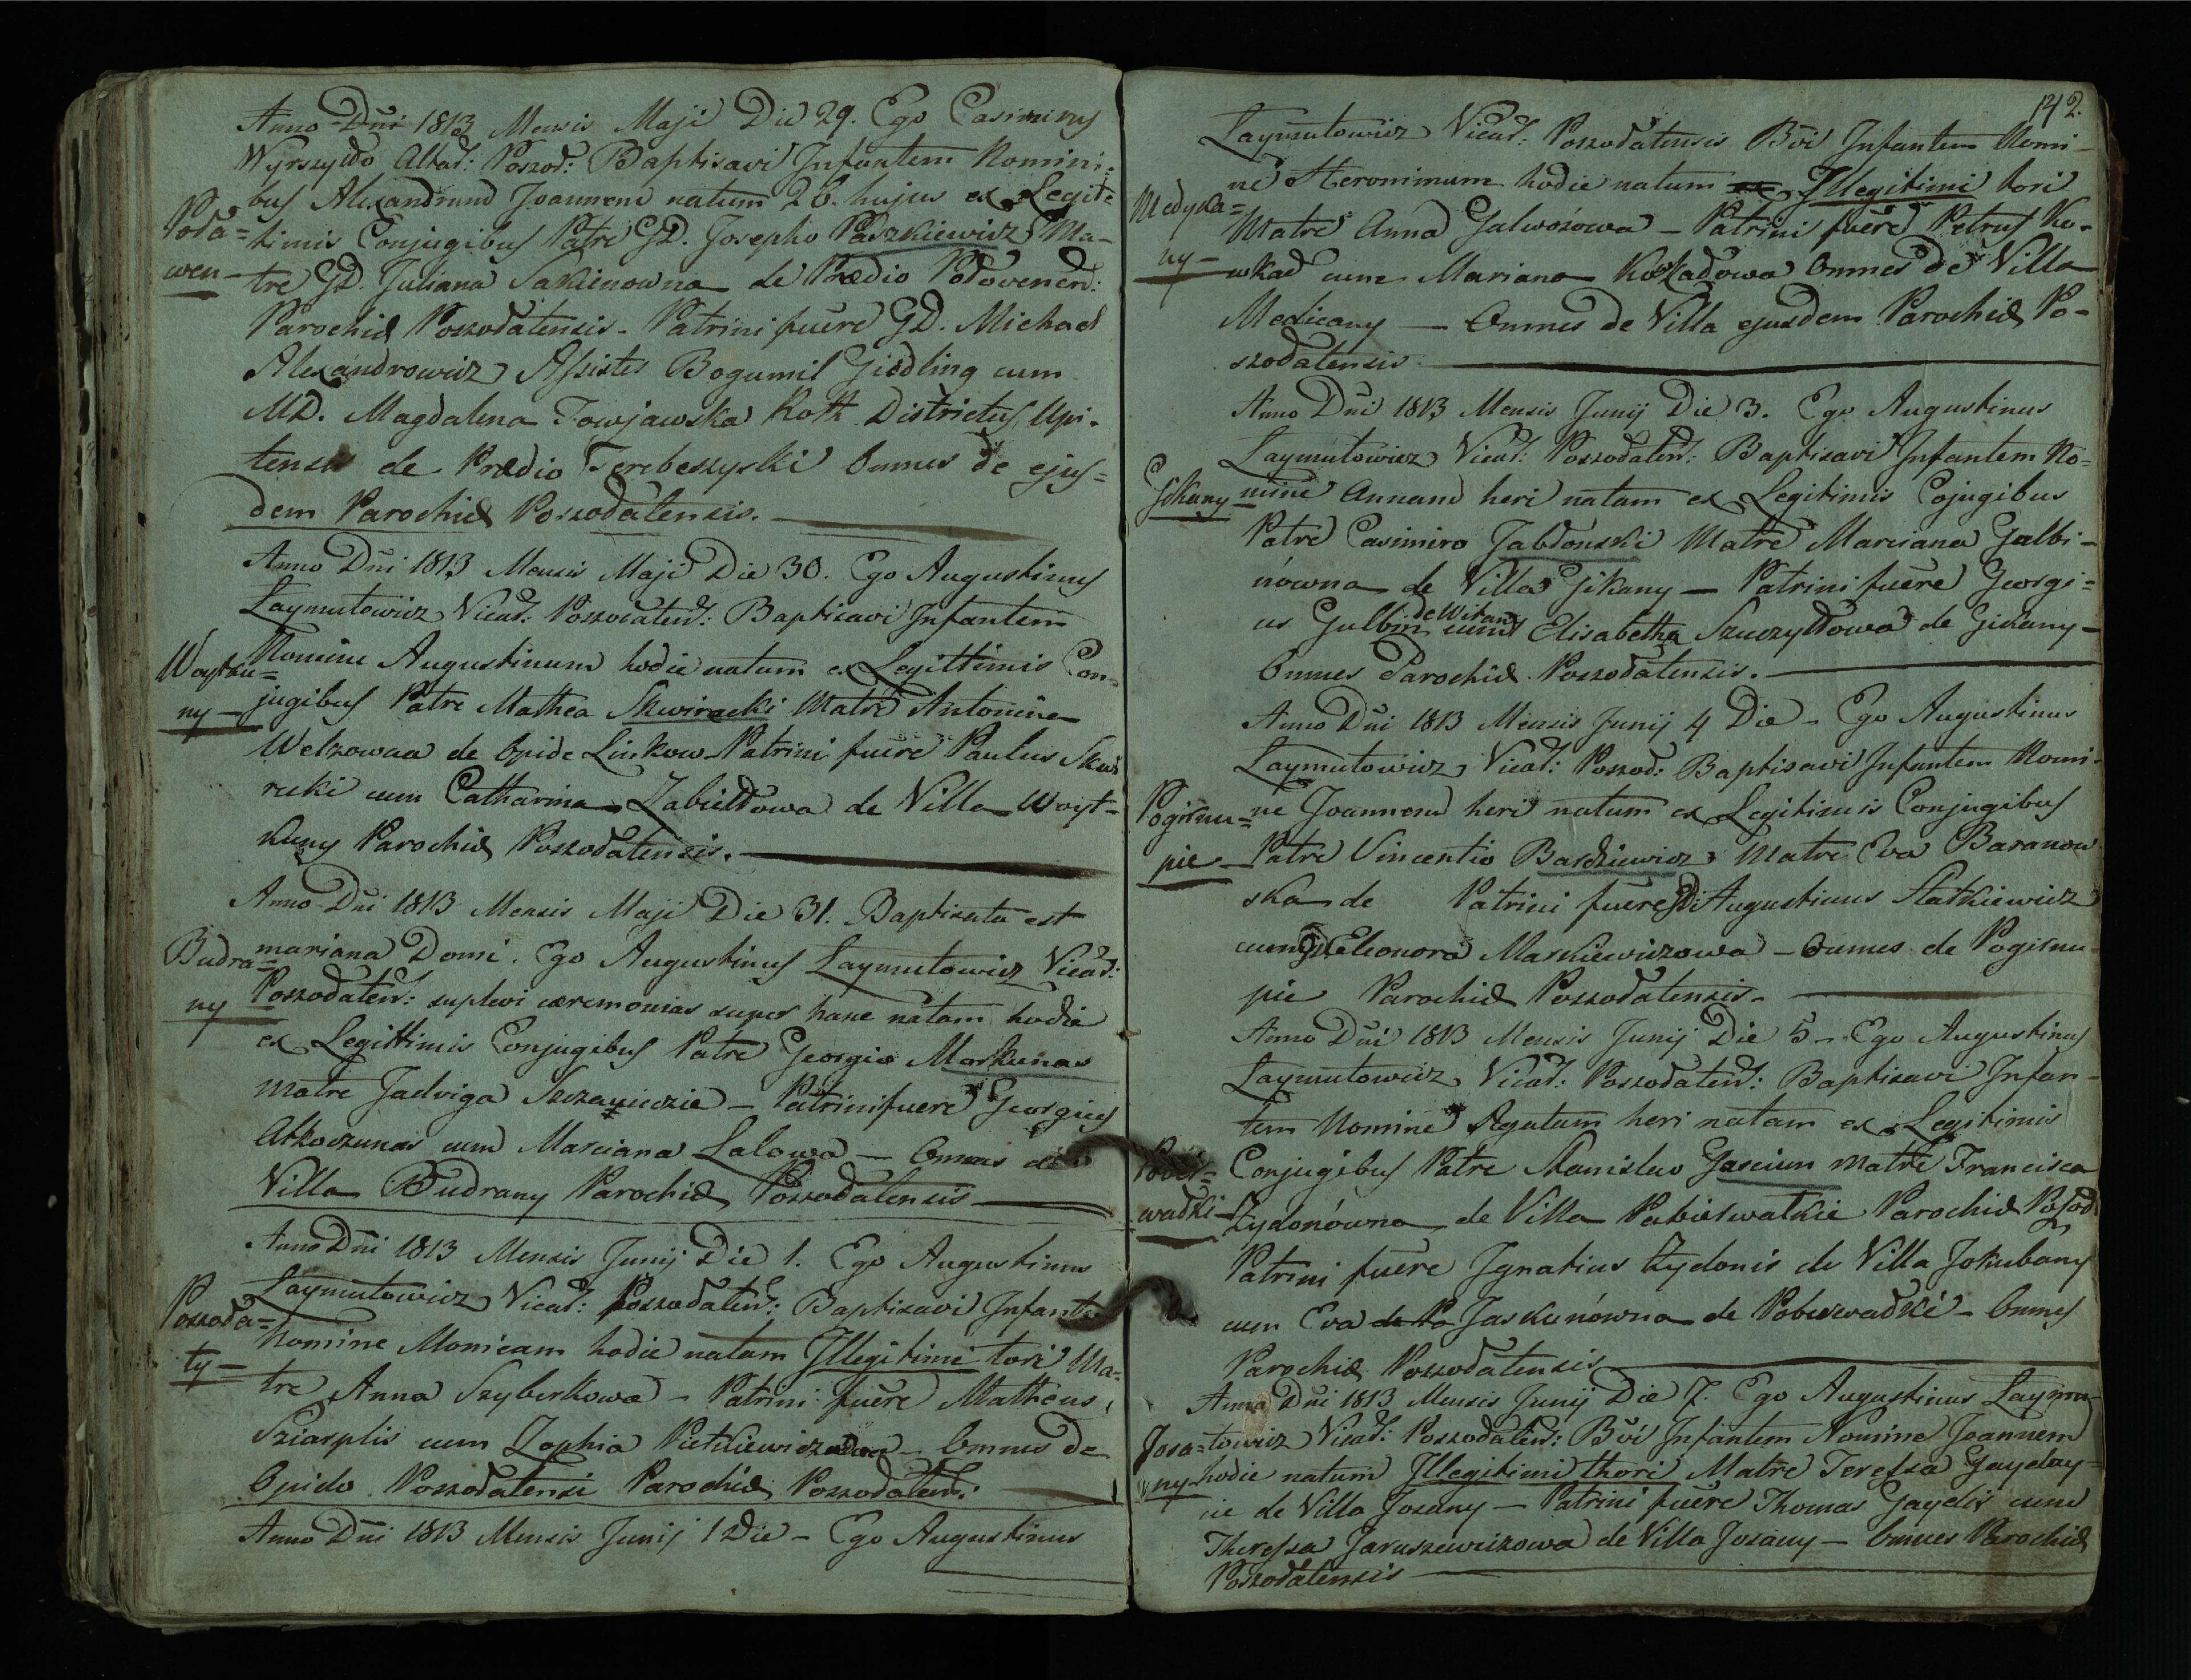 Anno Dni 1813 Mensis Maji Die 29. Ego Casimirus
Wyrszyłło Altar: Poszoł: Baptisavi Infantem Nomini=
bus Alexandrum Joannem natum 26. hujus ex Legit=
timis Conjugibus Patre GD. Josepho Paszkiewicz Ma-
tre GD. Juliana Sakienowna de Prædio
Parochiæ Poszołatensis. Patrini fuere GD. Michael
Alexandrowicz Assistes Bogumil Giedling cum
MD. Magdalena Towjawska Roth. Districtus Upi-
tensis de Prædio Terebeszyski Omnes de ejus=
dem Parochiæ Poszołatensis.
Anno Dni 1813 Mensis Maji Die 30. Ego Augustinus
Laymutowicz Vicar: Poszołaten: Baptisavi Infantem
Woytku=
ny
Nomine Augustinum hodie natum ex Legittimis Con=
jugibus Patre Mathea Skwirecki Matre Antonina
de Opide Linkow Patrini fuere Paulus Skwi
recki cum Catharina Zabiełłowa de Villa Woyt=
kuny Parochiæ Poszołatensis.
Anno Dni 1813 Mensis Maji Die 31. Baptisata est
Budra=
ny
mariana Domi. Ego Augustinus Laymutowicz Vicar:
Poszołaten: suplevi cæremonias super hanc natam hodie
ex Legittimis Conjugibus Patre Georgio Markunas
Matre Jadviga - Patrini fuere Georgius
Atkoczunas cum Marciana Lalowa - Omnes de
Villa Budrany Parochiæ Poszołatensis
Anno Dni 1813 Mensis Junij Die 1. Ego Augustinus
Laymutowicz Vicar: Poszołaten: Baptisavi Infante
Poszoła=
ty
Nomine Monicam hodie natam Illegitimi tori Ma=
tre Anna Szyberkowa - Patrini fuere Matheus
Sziarplis cum Zophia - Omnes de
Opido Poszołatensi Parochiæ Poszołaten:
Anno Dni 1813 Mensis Junij 1 Die - Ego Augustinus
142.
Laymutowicz Vicar: Poszołatensis Bvi Infantem Nomi-
ne Heronimum hodie natum Illegitimi tori
Medyka=
ny
Matre Anna Galwozowa - Patrini fuere Petrus Ko-
wkad cum Mariana Omnes de Villa
Medicany - Omnes de Villa ejusdem Parochiæ Po-
szołatensis.
Anno Dni 1813 Mensis Junij Die 3. Ego Augustinus
Laymutowicz Vicar: Poszołaten: Baptisavi Infantem No=
Gikany
mine Annam heri natam ex Legitimis Cojugibus
Patre Casimiro Jabłonski Matre Marciana Galbi-
nówna de Villa Gikany - Patrini fuere Georgi=
us Gulbin cum Elisabetha Szuczyłłowa de Gikany-
Omnes Parochiæ Poszołatensis.
Anno Dni 1813 Mensis Junij 4 Die - Ego Augustinus
Laymutowicz Vicar: Poszoł: Baptisavi Infantem Nomi-
Pogirnu=
pie
ne Joannem heri natum ex Legitimis Conjugibus
Patre Vincentio Bardziewicz Matre Eva Baranow
ska de Patrini fuere GD Augustinus Statkiewicz
cum GD Eleonora Markiewiczowa - Omnes de Pogirnu
pie Parochiæ Poszołatensis.
Anno Dni 1813 Mensis Junij Die 5 - Ego Augustinus
Laymutowicz Vicar: Poszołaten: Baptisavi Infan-
tem Nomine Agatam heri natam ex Legitimis
Conjugibus Patre Stanislao Matre Francisca
Zydonówna de Villa Pabierwatkie Parochiæ Poszoł.
Patrini fuere Ignatius Zydonis de Villa Jokubany
cum Eva de Po Jaskunówna de - Omnes
Parochiæ Poszołatensis
Anno Dni 1813 Mensis Junij Die 7. Ego Augustinus Laymu-
Joza=
ny
towicz Vicar: Poszołaten: Bvi Infantem Nomine Joannem
hodie natum Illegitimi thori Matre Teressa Gayday=
cie de Villa Jozany - Patrini fuere Thomas Gaydis cum
Theressa Jaruszewiczowa de Villa Jozany - Omnes Parochiæ
Poszołatensis